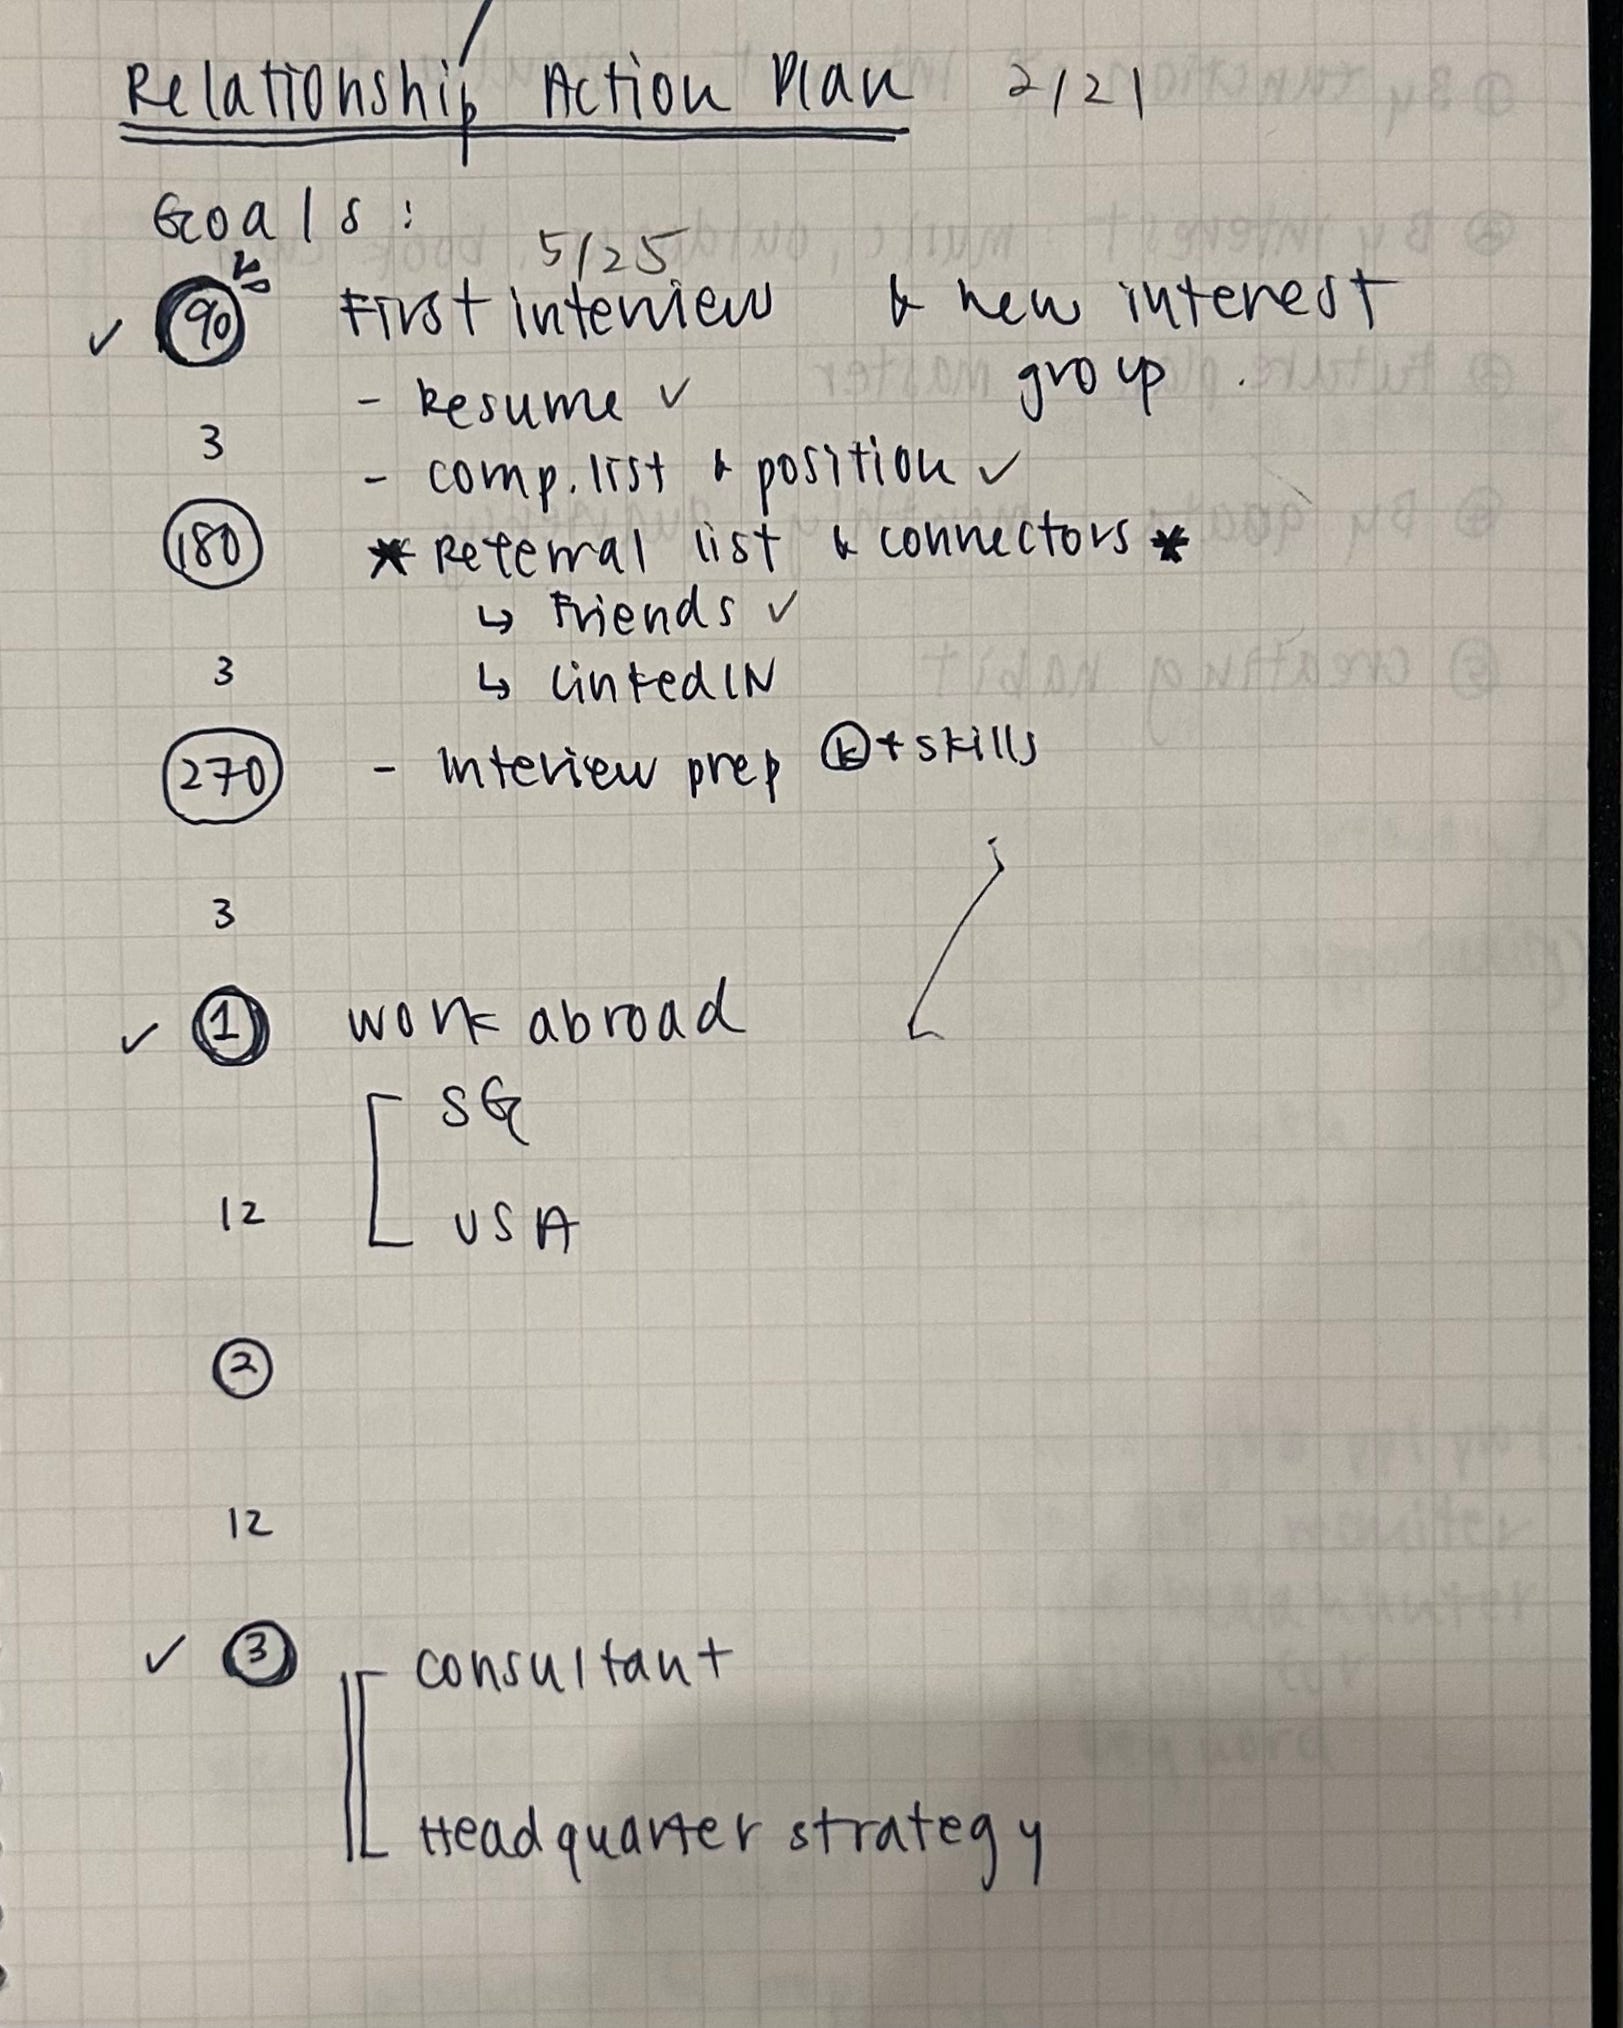 Relationship Action Plan 2/21
Goals:
5/25
✓ 90 First interview & new interest
group.
- Resume ✓
3
- comp. list & position ✓
180 * Referral list & connectors *
↳ Friends ✓
3 ↳ LinkedIN
270 - Interview prep Ⓚ + skills
3
✓ ① work abroad
SG
12 USA
②
12
✓ ③ consultant
Headquarter strategy